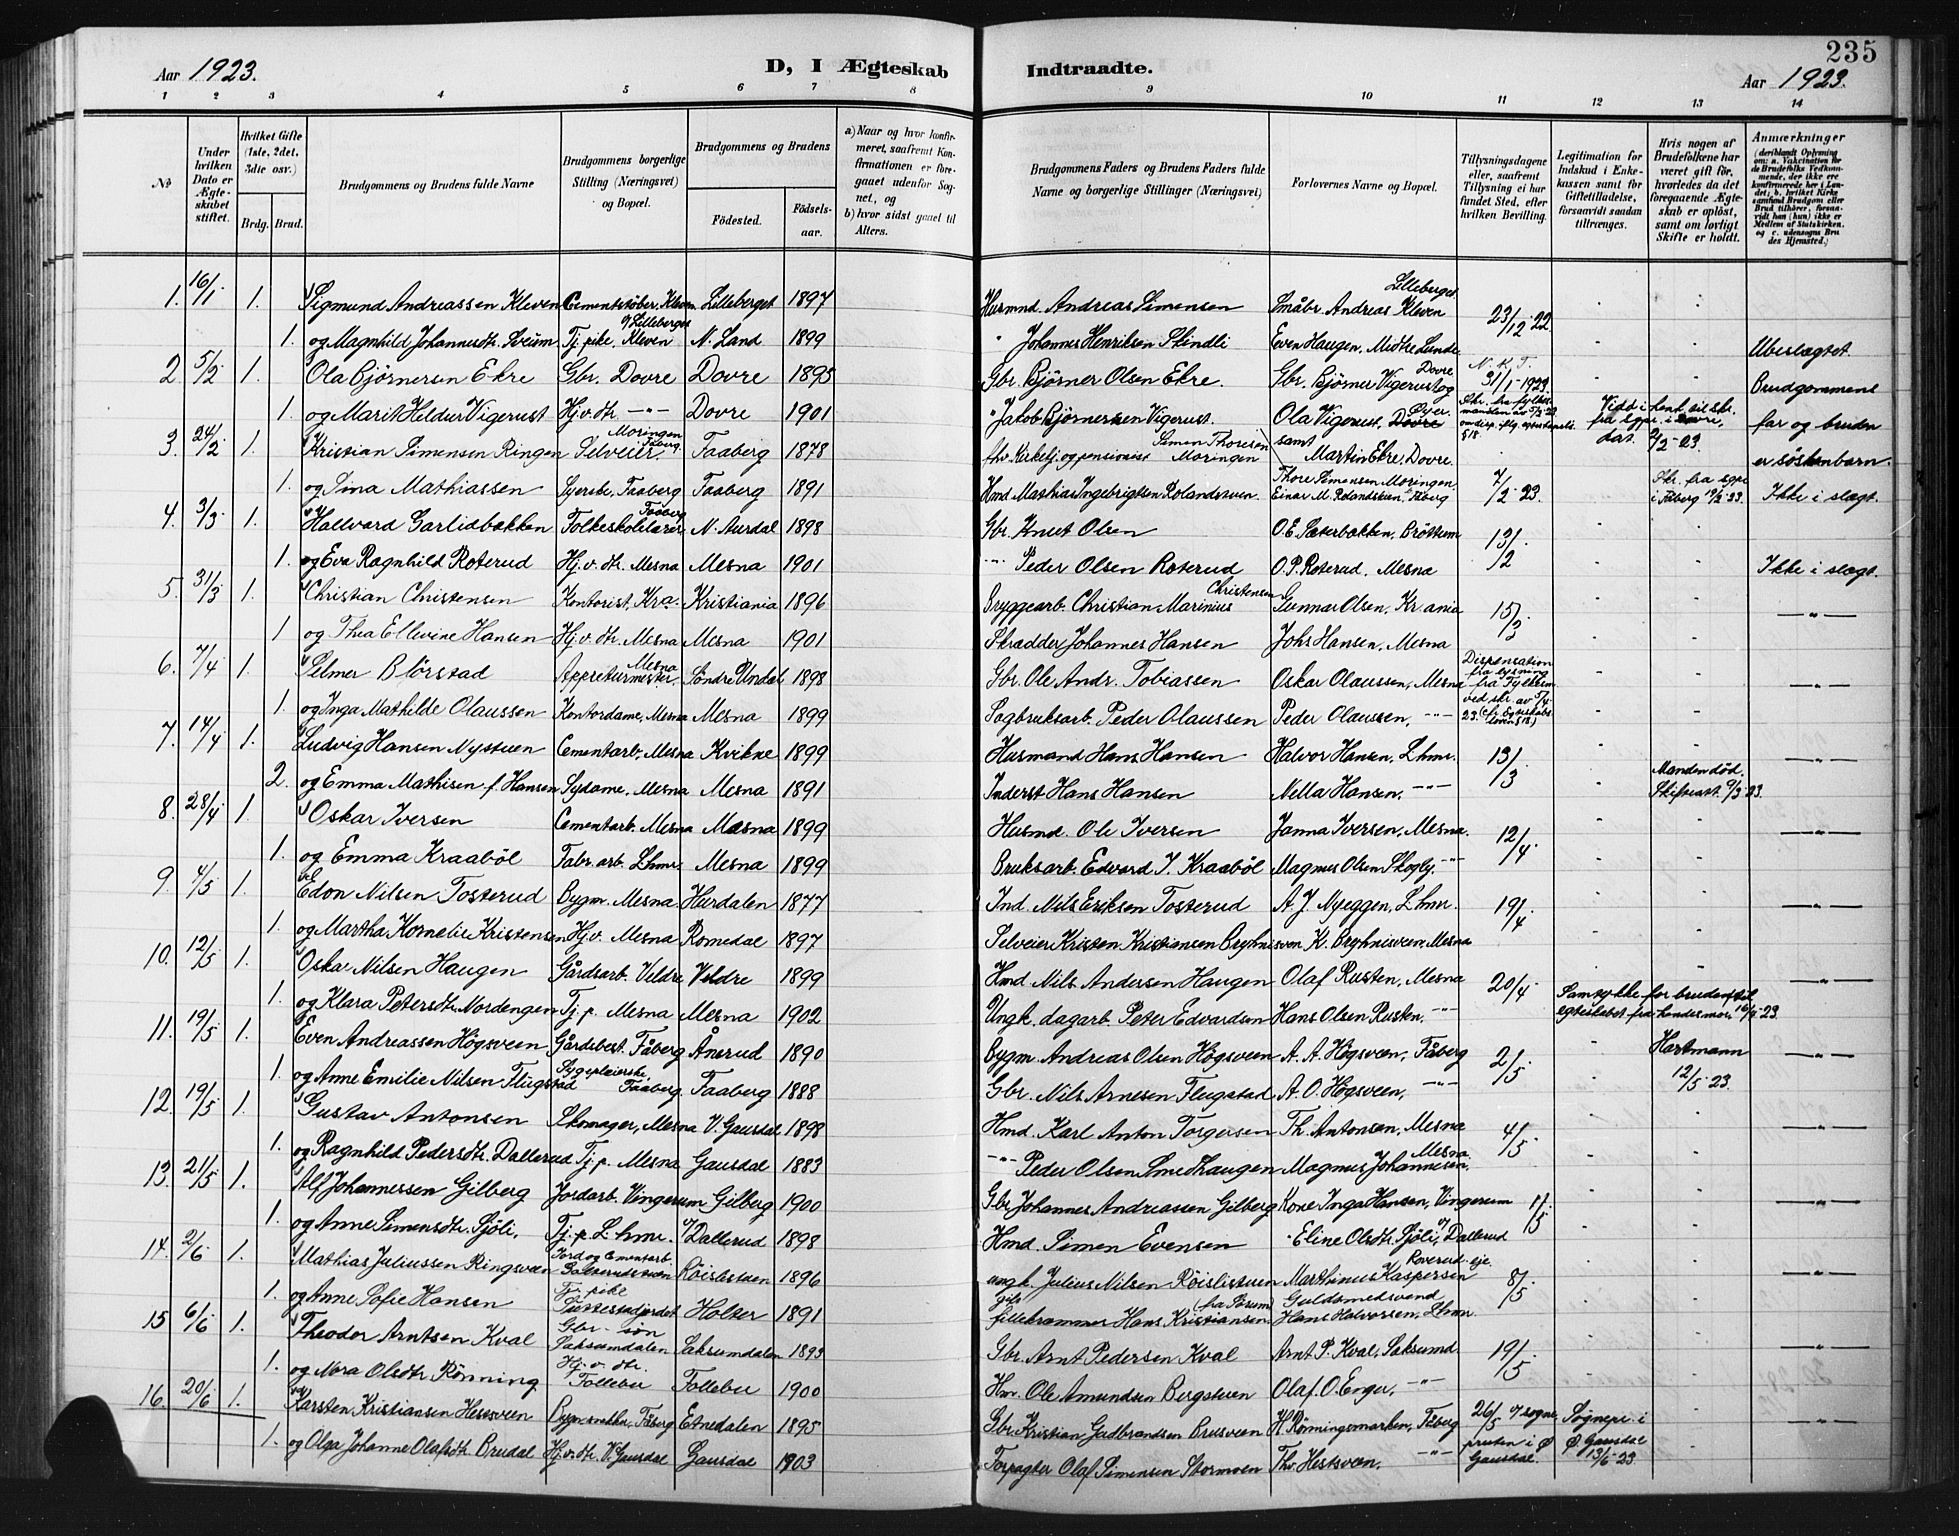 235
Aar 1923. D, I Ægteskab Indtraadte. Aar 1923.
1 2 3 4 5 6 7 8 9 10 11 12 13 14
№
Under hvilken Dato er Ægteskabet stiftet.
Hvilket Gifte (1ste, 2det, 3die osv.)
Brdg. Brud.
Brudgommens og Brudens fulde Navne
Brudgommens borgerlige Stilling (Næringsvei) og Bopæl.
Brudgommens og Brudens
Fødested. Fødselsaar.
a) Naar og hvor konfirmeret, saafremt Konfirmationen er foregaaet udenfor Sognet, og
b) hvor sidst gaaet til Alters.
Brudgommens Faders og Brudens Faders fulde Navne og borgerlige Stillinger (Næringsvei)
Forlovernes Navne og Bopæl.
Tillysningsdagene eller, saafremt Tillysning ei har fundet Sted, efter hvilken Bevilling.
Legitimation for Indskud i Enkekassen samt for Giftetilladelse, forsaavidt saadan tiltrænges.
Hvis nogen af Brudefolkene har været gift før, hvorledes da det foregaaende Ægteskab er opløst, samt om lovligt Skifte er holdt.
Anmærkninger (deriblandt Oplysning om: a. Vakcination for de Brudefolks Vedkommende, der ikke ere konfirmerede her i Landet; b. hvilket Kirkesamfund Brudgom eller Brud tilhører, forsaavidt han (hun) ikke er Medlem af Statskirken. og c. udensogns Brudes Hjemsted.)
1. 16/1 1. Sigmund Andreassen Kleven Cementstøber, Kleven u/ Lilleberget Lilleberget 1897 Husmnd. Andreas Simensen Småbr. Andreas Kleven Lilleberget 23/12 22.
1. og Magnhild Johannesdtr. Sveum Tj. pike, Kleven N. Land 1899 " Johannes Henriksen Skindli Even Haugen, Midtre Lunde Ubeslægtet.
2. 5/2 1. Ola Bjørnersen Ekre Gbr. Dovre Dovre 1895 Gbr. Bjørner Olsen Ekre. Gbr. Bjørner Vigerust og Dovre 31/1-1923 Brudgommens
1. og Marit Heldur Vigerust Hj.v. dtr. —"— Dovre 1901 " Jakob Bjørnersen Vigerust. Ola Vigerust, Dovre samt Martin Ekre, Dovre. Skr. fra fylkesmanden §18. dat. 2/2-23. far og bruden er søskenbarn.
3. 24/2 1. Kristian Simensen Ringen Selveier, Moringen Faaberg 1878 fhv. Kirketj. og pensionist Simen Thoresen Moringen Thore Simensen Moringen,
1. og Sina Mathiassen Syerske, Faaberg Faaberg 1891 Hmd. Mathias Ingebrigtsen Rolandsveen. Einar M. Rolandsveen, Fåberg 7/2-23. Ikke i slægt.
4. 3/3 1. Hallvard Garlidbakken Folkeskolelærer Faaberg N. Aurdal 1898 Gbr. Knut Olsen O.E. Sæterbakken, Brøttum 13/2.
1. og Eva Ragnhild Roterud Hj.v. dtr. Mesna Mesna 1901 —"— Peder Olsen Roterud O.P. Roterud, Mesna Ikke i slægt.
5. 31/3 1. Christian Christensen Kontorist, Kra. Kristiania 1896 Bryggearb. Christian Marinius Christensen Gunnar Olsen, Kr.ania 15/3 —"—
1 og Thea Ellevine Hansen Hj.v. dtr. Mesna Mesna 1901 Skrædder Johannes Hansen Johs Hansen, Mesna
6. 7/4 1. Selmer Blørstad Appreturmester, Mesna Søndre Undal 1898 Gbr. Ole Andr. Tobiassen Oskar Olaussen, Mesna Dispensation fra lysning fra Fylkesm. ved skr. av 5/4 23. —"—
1. og Inga Mathilde Olaussen Kontordame, Mesna Mesna 1899 Sagbruksarb. Peder Olaussen Peder Olaussen, —"—
7. 14/4 1. Ludvig Hansen Nystuen Cementarb, Mesna Kvikne 1899 Husmand Hans Hansen Halvor Hansen, Lhmr. 13/3 —"—
2. og Emma Mathisen f. Hansen Sydame, Mesna Mesna 1891 Inderst Hans Hansen Nella Hansen, —"— Manden død. Skifteatt. 9/3-23.
8. 28/4 1. Oskar Iversen Cementarb. Mesna Mesna 1899 Husmd. Ole Iversen Janna Iversen, Mesna. 12/4 —"—
1. og Emma Kraabøl Fabr. arb. Lhmr. Mesna 1899 Bruksarb. Edvard J. Kraabøl Magnus Olsen Skogly. —"—
9. 4/5 1. Edon Nilsen Tosterud Bygm. Mesna Hurdalen 1877 Ind. Nils Eriksen Tosterud A. J. Nyeggen, Lhmr. 19/4 —"—
1. og Martha Kornelie Kristensen Hj.v. Mesna Romedal 1897 Selveier Kristen Kristiansen Bryhnisveen K. Bryhnisveen, Mesna
10. 12/5 1. Oskar Nilsen Haugen Gårdsarb. Veldre Veldre 1899 Hmd. Nils Andersen Haugen Olaf Rusten, Mesna 20/4 —"—
1. og Klara Petersdtr Nordengen Tj. p. Mesna Mesna 1902 Ungk. dagarb. Peter Edvardsen Hans Olsen Rusten, —"— Samtykke for bruden til egteskabet fra hendes mor, 16/4-23.
11. 19/5 1. Even Andreassen Høgsveen Gårdsbest. Fåberg Ånerud 1890 Bygm. Andreas Olsen Høgsveen A. A. Høgsveen, Fåberg 2/5 Hartmann 12/5-23. —"—
1. og Anne Emilie Nilsen Flugstad Sygepleierske Faaberg Faaberg 1888 Gbr. Nils Arnesen Flugstad A. O. Høgsveen, —"—
12. 19/5 1. Gustav Antonsen Skomager, Mesna V. Gausdal 1898 Hmd. Karl Anton Torgersen Th. Antonsen, Mesna 4/5 —"—
1. og Ragnhild Pedersdtr. Dallerud Tj. p. Mesna Gausdal 1883 —"— Peder Olsen Smedhaugen Magnus Johannesen, Mesna
13. 21/5 1. Alf Johannessen Gilberg Jordarb. Vingerum Gilberg 1900 Gbr. Johannes Andreassen Gilberg Kone Inga Hansen, Vingerum 1/5 —"—
1. og Anne Simensdtr. Sjøli, Tj. p. Lhmr. u/ Dallerud 1898 Hmd. Simen Evensen " Eline Olsdtr. Sjøli, u/ Dallerud
14. 2/6 1. Mathias Juliussen Ringsveen Jord og Cementarb. Røislistuen 1896 ungk. Julius Nilsen Røislistuen Marthinus Kaspersen Roverud eje. 8/5. —"—
1. og Anne Sofie Hansen Tj. pike Holter 1891 fillekrammer Hans Kristiansen (fra Sørum) Guldsmedsvend Hans Halvorsen, Lhmr.
15 6/6 1. Theodor Arntsen Kval Gbr. søn Saksumdalen Saksumdalen 1893 Gbr. Arnt Pedersen Kval Arnt P. Kval, Saksumd. 19/5. —"—
1. og Nora Olsdtr Rønning Hj.v. dtr. Follebu Follebu 1900 Hm. Ole Amundsen Bergstuen Olaf O. Enger, —"—
16. 20/6 1. Karsten Kristiansen Hesveen Bygmsnekker, Fåberg Etnedalen 1895 Gbr. Kristian Gudbrandsen Brusveen H. Rønningsmarken, Fåberg 26/5 v/ sogneprsten i Ø Gausdal. Sognepr. i Ø. Gausdal 13/6-23.
1. og Olga Johanne Olafsdtr Brudal Hj.v. dtr. V. Gausdal Gausdal 1903 Forpagter Olaf Simensen Stormoen Thv. Hestsveen. —"—